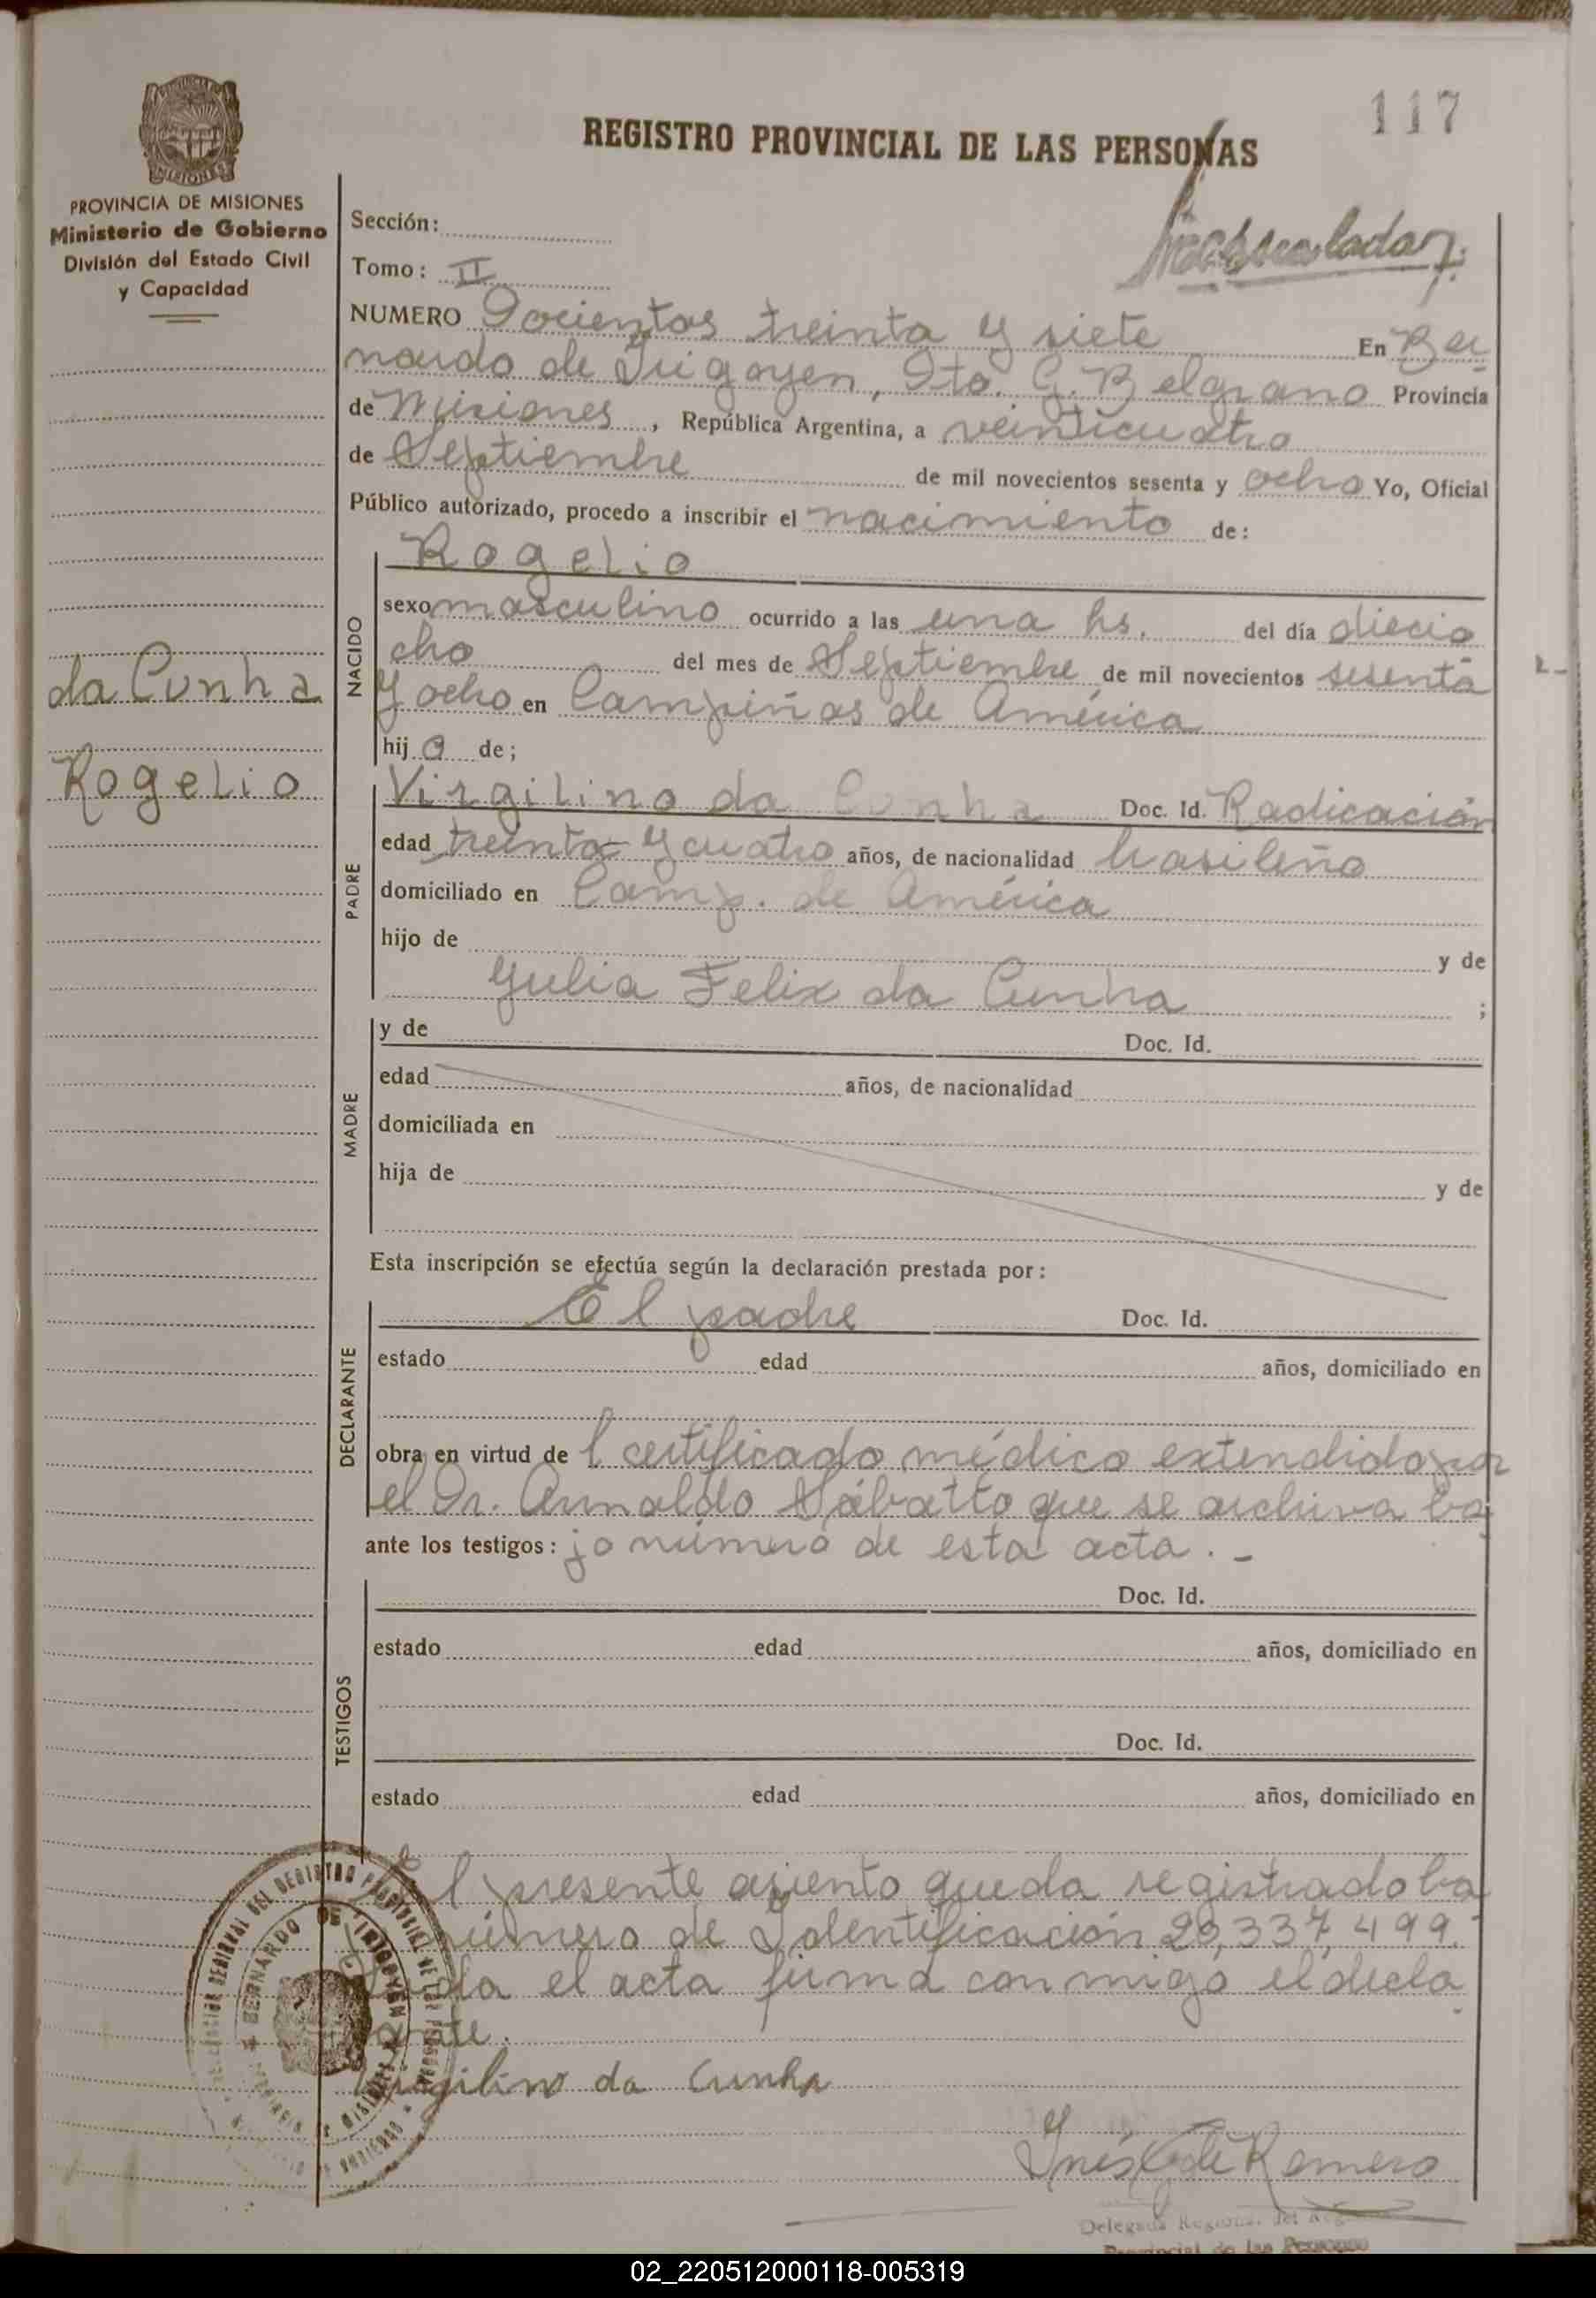 117
REGISTRO PROVINCIAL DE LAS PERSONAS
PROVINCIA DE MISIONES
Ministerio de Gobierno
División del Estado Civil
y Capacidad
Sección:
Tomo: II
NUMERO Docientos treinta y siete En Ber
nardo de Irigoyen, Dto. G. Belgrano Provincia
de Misiones, República Argentina, a veinticuatro
de Septiembre de mil novecientos sesenta y ocho Yo, Oficial
Público autorizado, procedo a inscribir el nacimiento de:
Rogelio
NACIDO
sexo masculino ocurrido a las una hs. del día diecio
cho del mes de Septiembre de mil novecientos sesenta
y ocho en Campiñas de América
hijo de;
da Cunha
Rogelio
PADRE
Virgilino da Cunha Doc. Id. Radicación
edad treinta y cuatro años, de nacionalidad brasileño
domiciliado en Camp. de América
hijo de y de
Yulia Felix da Cunha ;
MADRE
y de Doc. Id.
edad años, de nacionalidad
domiciliada en
hija de y de
Esta inscripción se efectúa según la declaración prestada por:
DECLARANTE
El padre Doc. Id.
estado edad años, domiciliado en
obra en virtud de l certificado médico extendido por
el Dr. Arnaldo Sábatto que se archiva ba
ante los testigos: jo número de esta acta. -
TESTIGOS
Doc. Id.
estado edad años, domiciliado en
Doc. Id.
estado edad años, domiciliado en
El presente asiento queda registrado ba
número de Identificación 20,337,499.
el acta firma conmigo el decla
rante.
Virgilino da Cunha
BERNARDO DE IRIGOYEN
Inés de Romero
Delegada Regional del
Provincial de las Personas
02_220512000118-005319